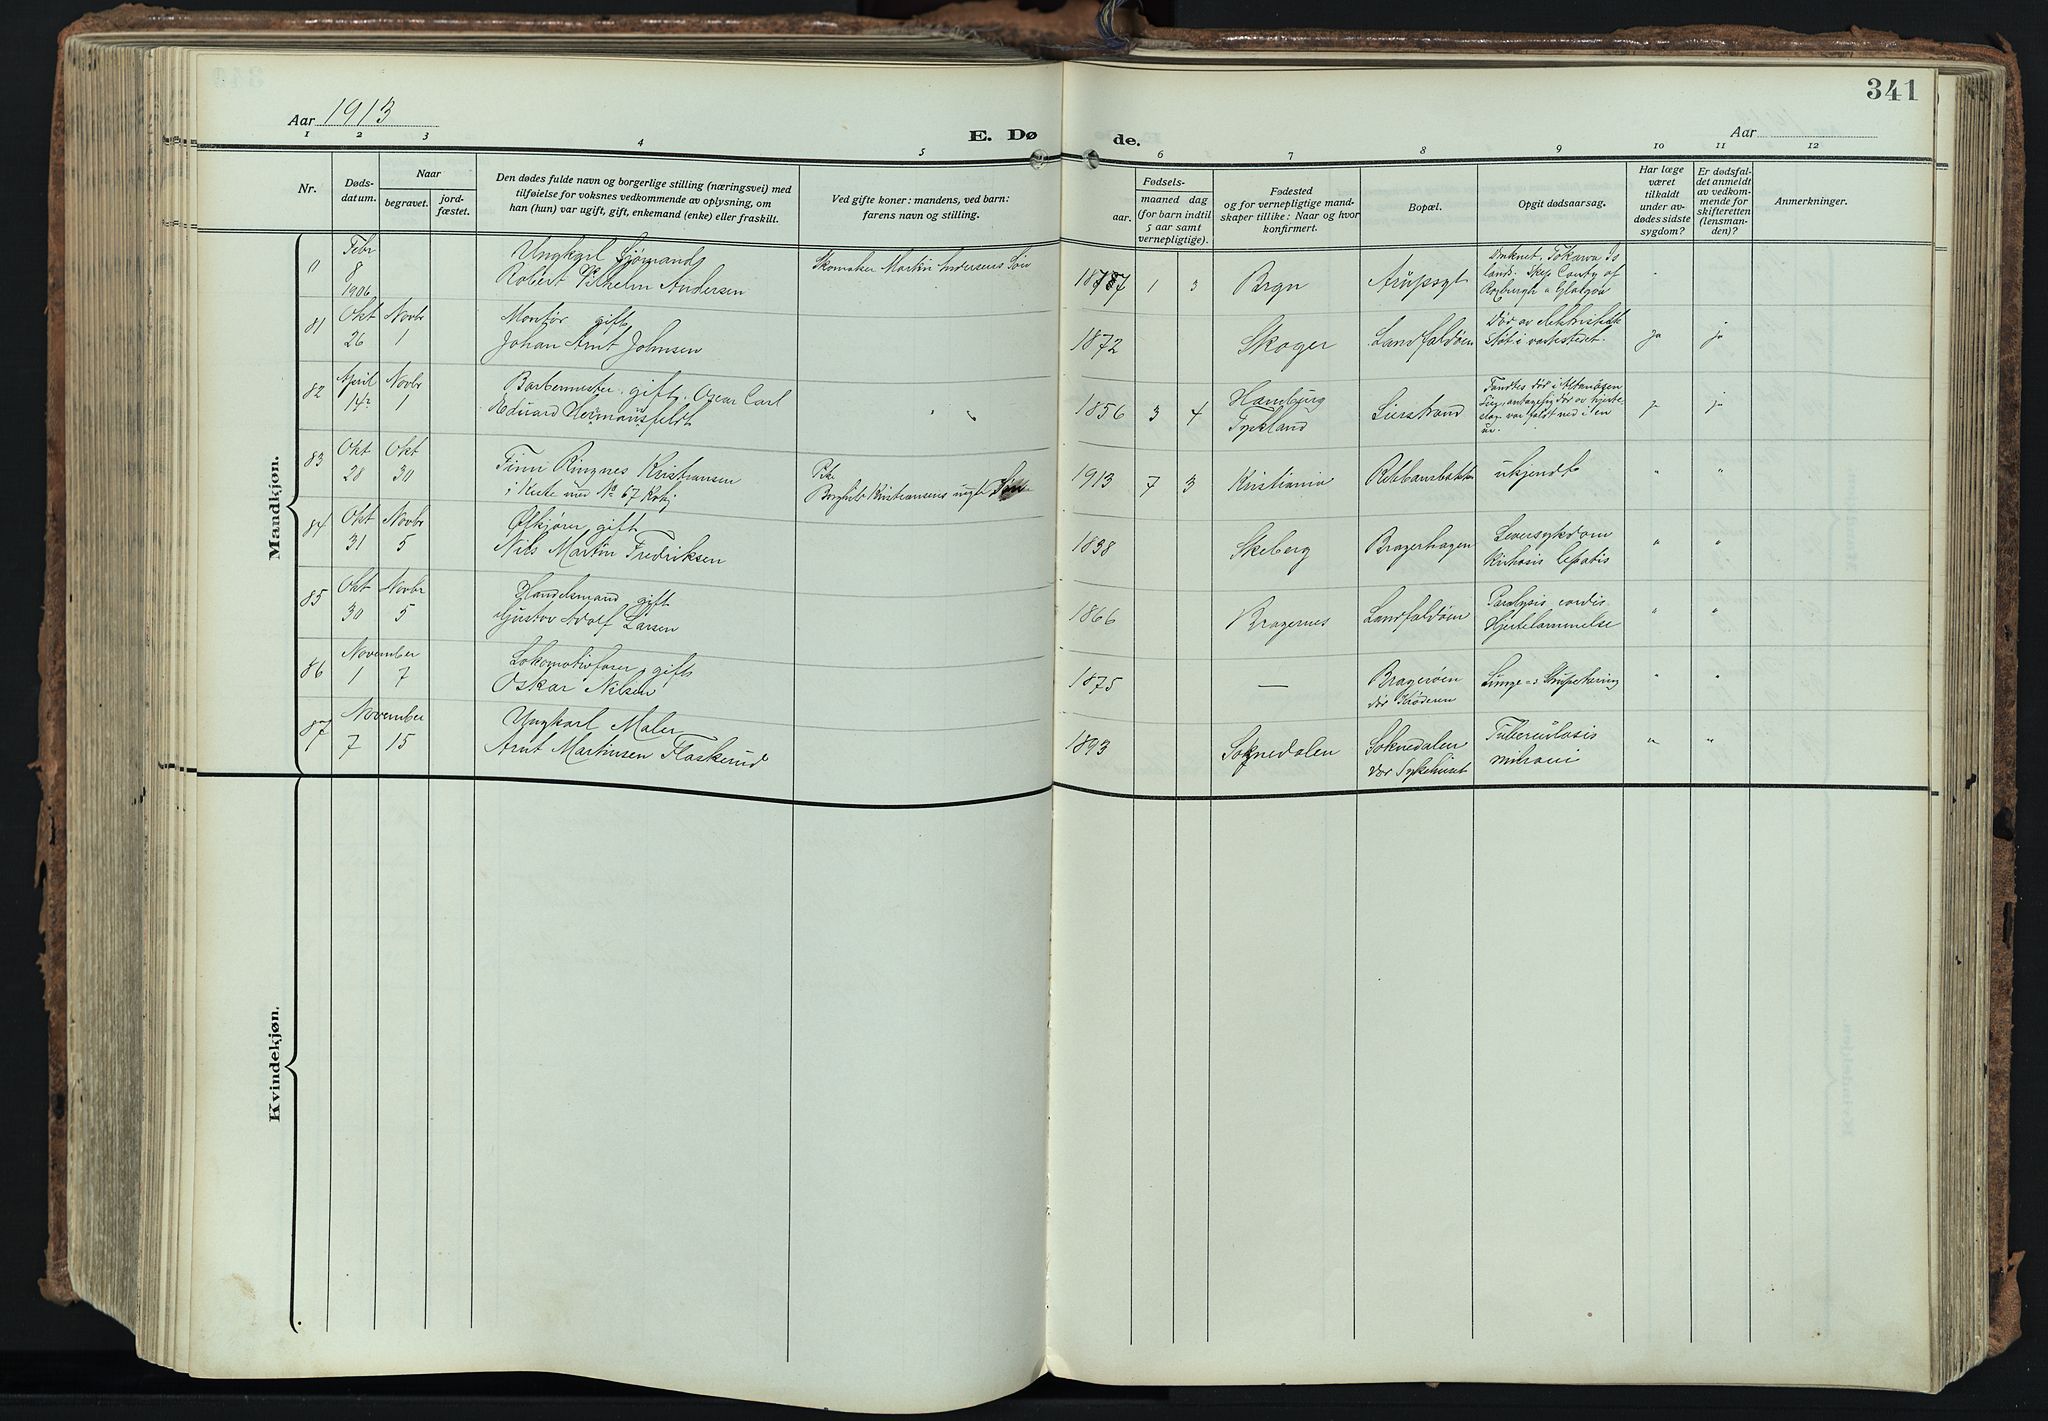 341
Aar 1913
E. Dø
de.
Aar
1 2 3 4 5 6 7 8 9 10 11 12
Nr.
Døds-
datum.
Naar
begravet.
jord-
fæstet.
Den dødes fulde navn og borgerlige stilling (næringsvei) med
tilføielse for voksnes vedkommende av oplysning, om
han (hun) var ugift, gift, enkemand (enke) eller fraskilt.
Ved gifte koner: mandens, ved barn:
farens navn og stilling.
Fødsels-
aar.
maaned dag
(for barn indtil
5 aar samt
vernepligtige).
Fødested
og for vernepligtige mand-
skaper tillike: Naar og hvor
konfirmert.
Bopæl.
Opgit dødsaarsag.
Har læge
været
tilkaldt
under av-
dødes sidste
sygdom?
Er dødsfal-
det anmeldt
av vedkom-
mende for
skifteretten
(lensman-
den)?
Anmerkninger.
Mandkjøn.
Febr
8
1906
Ungkarl Sjømand
Robert Vilhelm Andersen
Skomaker Martin Andersens Søn
1 3
Bragn
Druknet. Tokawa Is
land. Skip County of
Roxburgh a Glasgow
81
Okt Novbr
26 1
Montør gift
Johan Arnt Johnsen
1872
Skoger
Landfaldøen
Død av elektrisk
Støt i verkstedet.
ja ja
82
April Novbr
14 1
Barbermester gift. Oscar Carl
Eduard Hermansfeldt
1856 3 4
Hamburg
Tyskland
Lierstrand
Fandtes død i
antagelig død av hjerte-
slag var faldt ned i en
ur.
ja ja
83
Okt Okt
28 30
Finn Ringnes Kristiansen
i Kiste med No 67 Kvkj
Pike
Borghild Kristiansens uegte Søn
1913 7 3
Kristiania
ukjendt
" "
84
Okt Novbr
31 5
Ølkjører gift
Nils Martin Fredriksen
1838
Skeberg
Bragerhagen
Leversykdom
Kirhosis hepatis
" "
85
Okt Novbr
30 5
Handelsmand gift
Gustav Adolf Larsen
1866
Bragernes
Landfaldøen
Paralysis cordis
Hjertelammelse
" "
86
November
1 7
Lokomotivfører gift
Oskar Nilsen
1875
—
Bragerøen
dør Krøderen
Lunge- & Strupetæring
" "
87
November
7 15
Ungkarl Maler
Arnt Martinsen Flaskerud
1893
Soknedalen
Soknedalen
dør Sykehuset
Tuberculosis
miliaris
" "
Kvindekjøn.